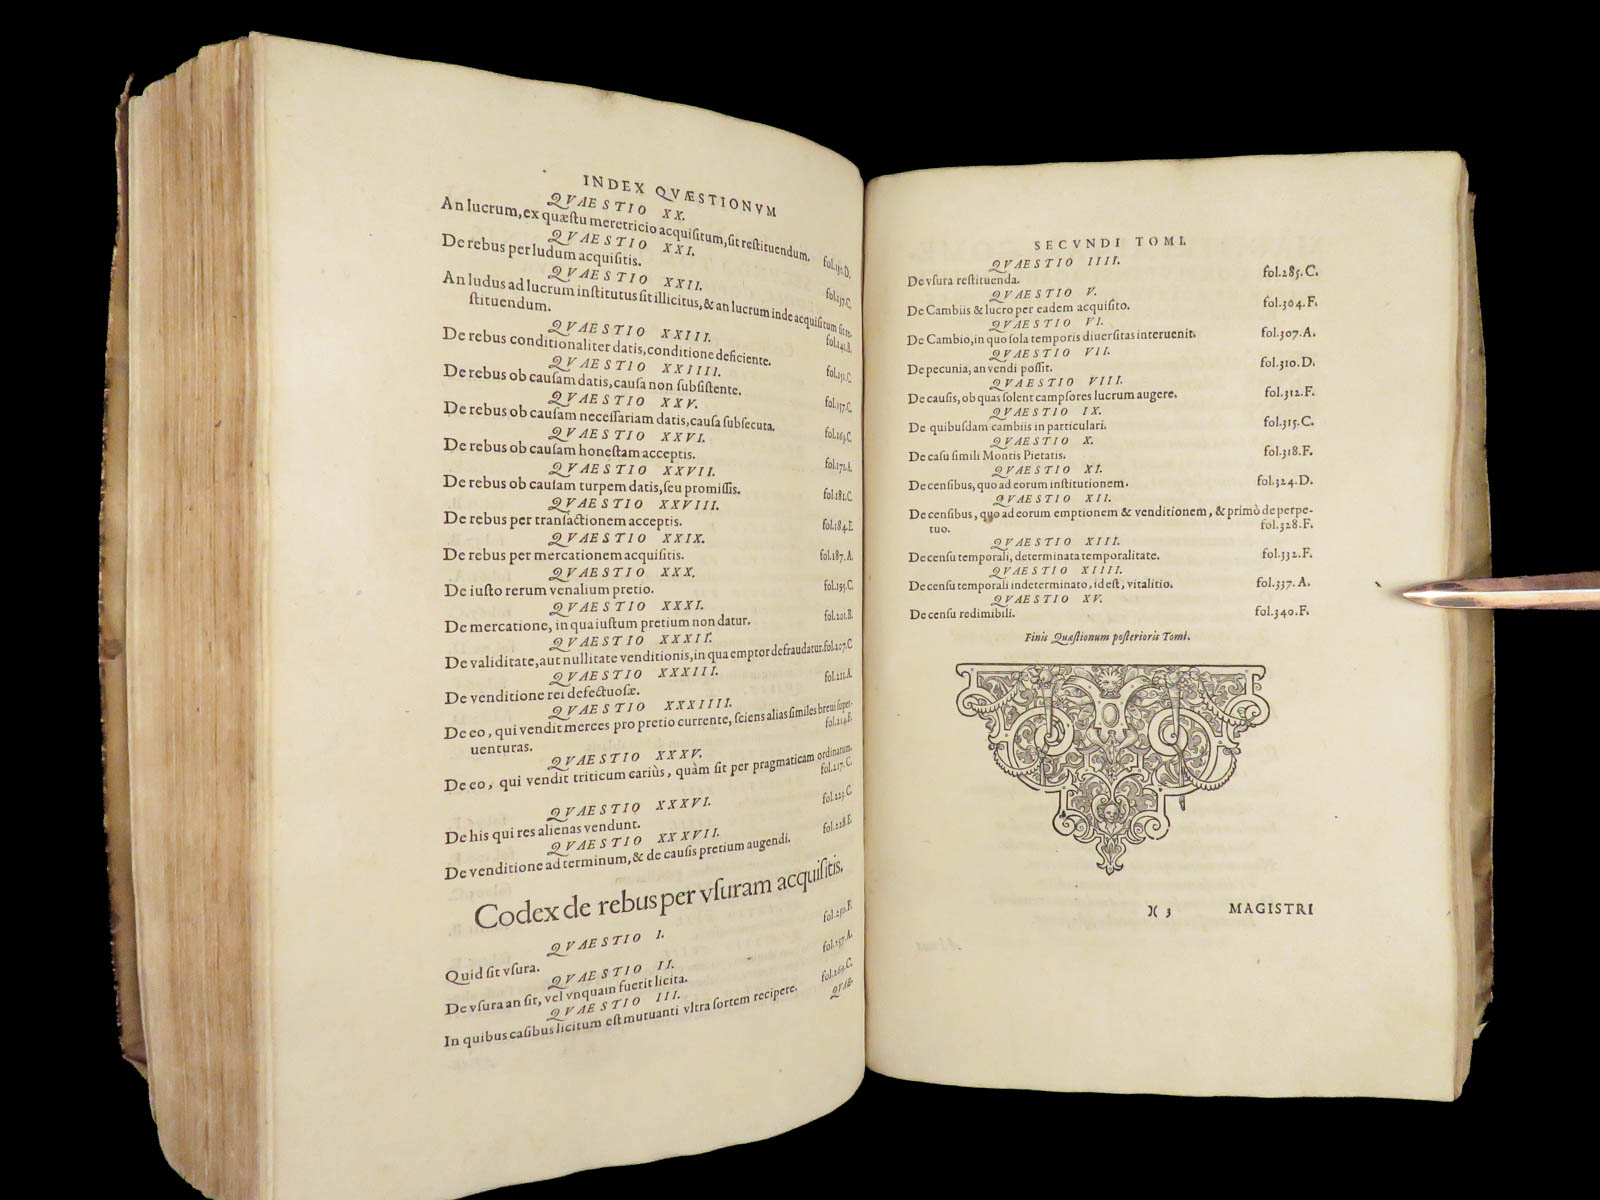 INDEX QVÆSTIONVM
QVAESTIO XX.
An lucrum, ex quæstu meretricio acquisitum, sit restituendum. fol.130.D.
QVAESTIO XXI.
De rebus per ludum acquisitis. fol.137.C.
QVAESTIO XXII.
An ludus ad lucrum institutus sit illicitus, & an lucrum inde acquisitum sit re-
stituendum. fol.141.B.
QVAESTIO XXIII.
De rebus conditionaliter datis, conditione deficiente. fol.151.C.
QVAESTIO XXIIII.
De rebus ob causam datis, causa non subsistente. fol.157.C.
QVAESTIO XXV.
De rebus ob causam necessariam datis, causa subsecuta. fol.163.C.
QVAESTIO XXVI.
De rebus ob causam honestam acceptis. fol.172.A.
QVAESTIO XXVII.
De rebus ob causam turpem datis, seu promissis. fol.182.C.
QVAESTIO XXVIII.
De rebus per transactionem acceptis. fol.184.E.
QVAESTIO XXIX.
De rebus per mercationem acquisitis. fol.187.A.
QVAESTIO XXX.
De iusto rerum venalium pretio. fol.195.C.
QVAESTIO XXXI.
De mercatione, in qua iustum pretium non datur. fol.201.B.
QVAESTIO XXXII.
De validitate, aut nullitate venditionis, in qua emptor defraudatur. fol.207.C.
QVAESTIO XXXIII.
De venditione rei defectuosæ. fol.211.A.
QVAESTIO XXXIIII.
De eo, qui vendit merces pro pretio currente, sciens alias similes breui super-
uenturas. fol.214.F.
QVAESTIO XXXV.
De eo, qui vendit triticum cariùs, quàm sit per pragmaticam ordinatum.
fol.217.C.
QVAESTIO XXXVI.
De his qui res alienas vendunt. fol.223.C.
QVAESTIO XXXVII.
De venditione ad terminum, & de causis pretium augendi. fol.228.E.
Codex de rebus per vsuram acquisitis.
QVAESTIO I.
Quid sit vsura. fol.250.F.
QVAESTIO II.
De vsura an sit, vel vnquam fuerit licita. fol.257.A.
QVAESTIO III.
In quibus casibus licitum est mutuanti vltra sortem recipere. fol.269.C.
QVAE-
SECVNDI TOMI.
QVAESTIO IIII.
De vsura restituenda. fol.285.C.
QVAESTIO V.
De Cambiis & lucro per eadem acquisito. fol.304.F.
QVAESTIO VI.
De Cambio, in quo sola temporis diuersitas interuenit. fol.307.A.
QVAESTIO VII.
De pecunia, an vendi possit. fol.310.D.
QVAESTIO VIII.
De causis, ob quas solent campsores lucrum augere. fol.312.F.
QVAESTIO IX.
De quibusdam cambiis in particulari. fol.315.C.
QVAESTIO X.
De casu simili Montis Pietatis. fol.318.F.
QVAESTIO XI.
De censibus, quo ad eorum institutionem. fol.324.D.
QVAESTIO XII.
De censibus, quo ad eorum emptionem & venditionem, & primò de perpe-
tuo. fol.328.F.
QVAESTIO XIII.
De censu temporali, determinata temporalitate. fol.332.F.
QVAESTIO XIIII.
De censu temporali indeterminato, id est, vitalitio. fol.337.A.
QVAESTIO XV.
De censu redimibili. fol.340.F.
Finis Quæstionum posterioris Tomi.
)( 3 MAGISTRI